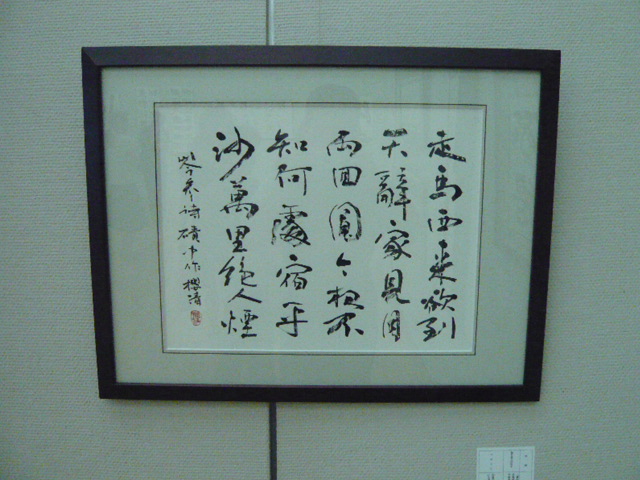 走馬西來欲到
天辭家見月
兩回圓今夜不
知何處宿平
沙萬里絕人煙
岑參詩磧中作